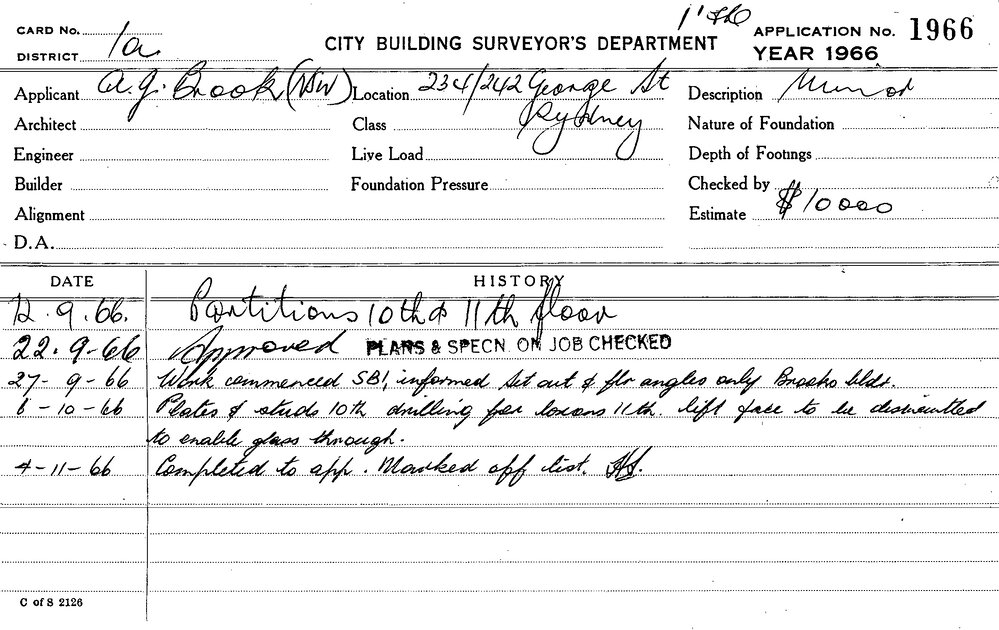 CARD No.
DISTRICT 1a
CITY BUILDING SURVEYOR'S DEPARTMENT
APPLICATION No. 1966
YEAR 1966
Applicant A.J. Brook (NSW) Location 234/242 George St Description Minor
Architect Class Sydney Nature of Foundation
Engineer Live Load Depth of Footings
Builder Foundation Pressure Checked by
Alignment Estimate $10000
D.A.
DATE HISTORY
12.9.66. Partitions 10th & 11th floor
22.9-66 Approved PLANS & SPECN. ON JOB CHECKED
27-9-66 Work commenced SB1, informed Set out & flr angles only Brooks bldr.
6-10-66 Plates & studs 10th drilling for 11th. lift face to be dismantled
to enable glass through.
4-11-66 Completed to app. Marked off list.
C of S 2126